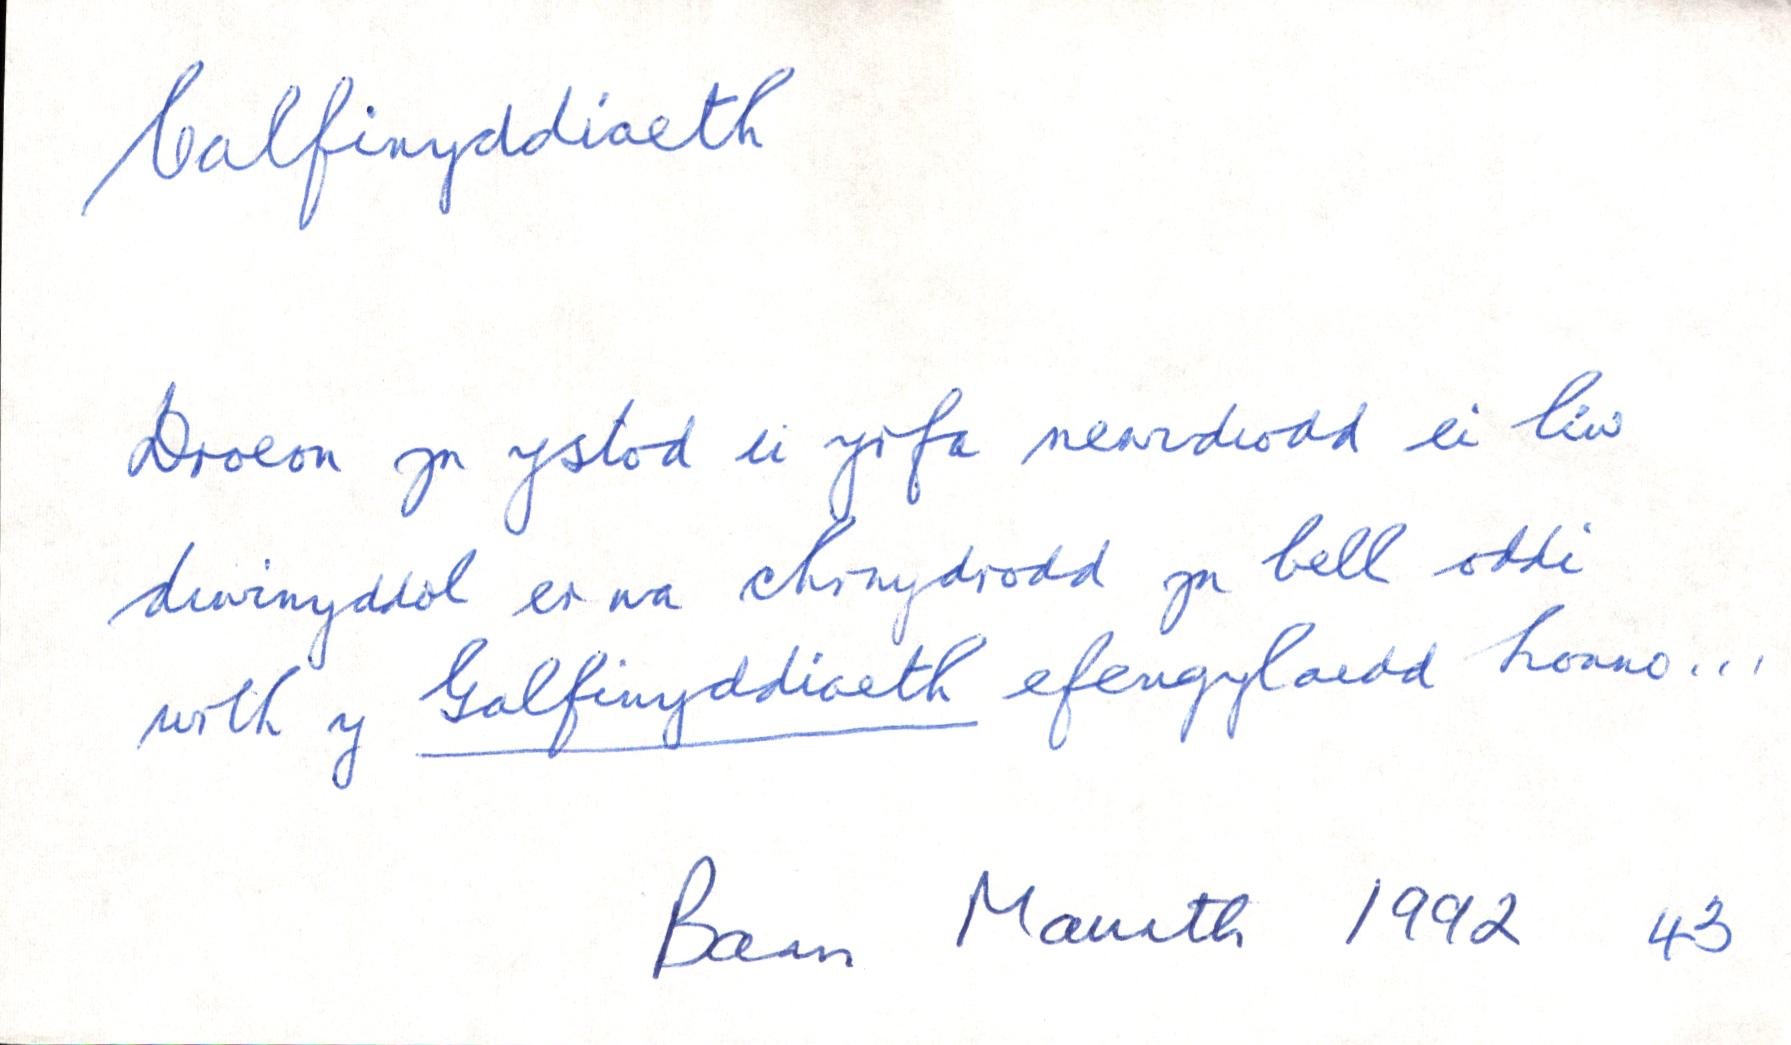 Calfinyddiaeth
Droeon yn ystod ei yrfa newidiodd ei liw
diwinyddol er na chrwydrodd yn bell oddi
wrth y Galfinyddiaeth efengylaidd honno...
Barn Mawrth 1992 43